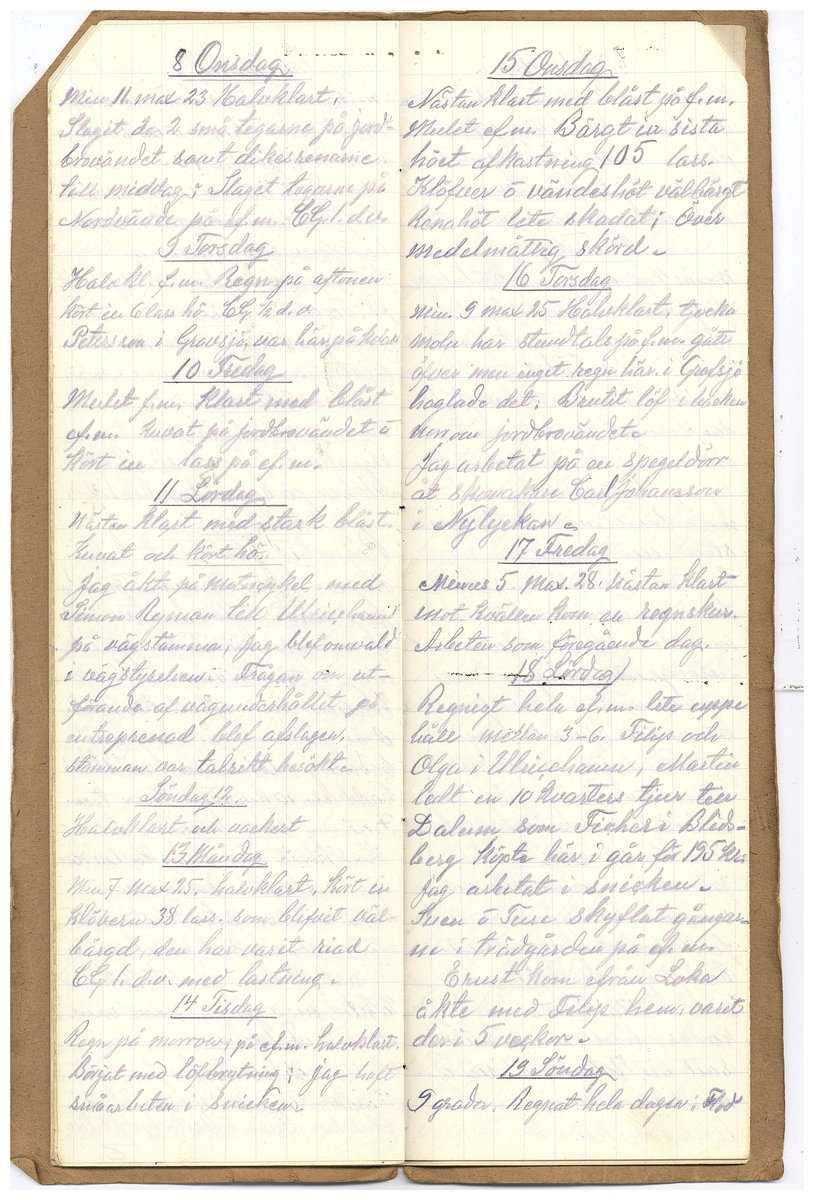 8 Onsdag
Min 11. max 23 Halvklart,
Slagit de 2 små tegarna på jord-
brovändet samt dikesrenarne
till middag; Slaget tegarne på
Nordvände på ef.m. CG, 1. d.v.
9 Torsdag
Halvkl. f.m. Regn på aftonen
Kört in lass hö. CG ½ d.v
Petersson i Gravsjö, var här på kväll
10 Fredag
Mulet f.m. Klart med blåst
ef.m. kuvat på jordbrovändet o
Kört in lass på ef.m.
11 Lördag
Nästan klart med stark blåst.
Kuvat och kört hö.
Jag åkt på motsykel med
Simon Ryman till Ulricehamn
på vägstämma; jag blef omvald
i vägstyrelsen. Frågan om ut-
förande af vägunderhållet på
entreprenad blef afslagen.
stämman var talrikt besökt.
Söndag 12.
Halvklart och vackert
13 Måndag
Min 7 max 25. halvklart. Kört in
klövern 38 lass. som blifvit väl-
bärgd, den har varit
CG, 1. d.v. med lastning.
14 Tisdag
Regn på morron; på ef.m. halvklart.
Börjat med löfbrytning; jag haft
småarbeten i snicken.
15 Onsdag
Nästan klart med blåst på f.m.
Mulet ef.m. Bärgt in sista
höet afkastning 105 lass.
Klöfver o vändeshöt välbärgt
Renahöt lite skadat; Över
medelmåttig skörd.
16 Torsdag
Min. 9 max 25 Halvklart, tjocka
moln har stundtals på f.m. gått
öfver men inget regn här. i Grafsjö
haglade det; Brutit löf i backen
norrom jordbrovändet.
Jag arbetat på en spegeldörr
åt skomakare Carl Johansson
i Nylyckan.
17 Fredag
Minus 5. Max. 28. Nästan klart
mot kvällen kom en regnskur.
Arbeten som föregående dag.
18 Lördag
Regnigt hela ef.m. lite uppe
håll mellan 3-6. Filip och
Olga i Ulricehamn, Martin
ledt en 10 kvarters tjur till
Dalum som Fischer i Blids-
berg köpte här i går för 195 Kr.
Jag arbetat i snicken.
Sven o Ture skyflat gångar-
ne i trädgården på ef.m.
Ernst kom ifrån Loka
åkte med Filip hem, varit
der i 5 veckor.
19 Söndag
9 grader. Regnat hela dagen;